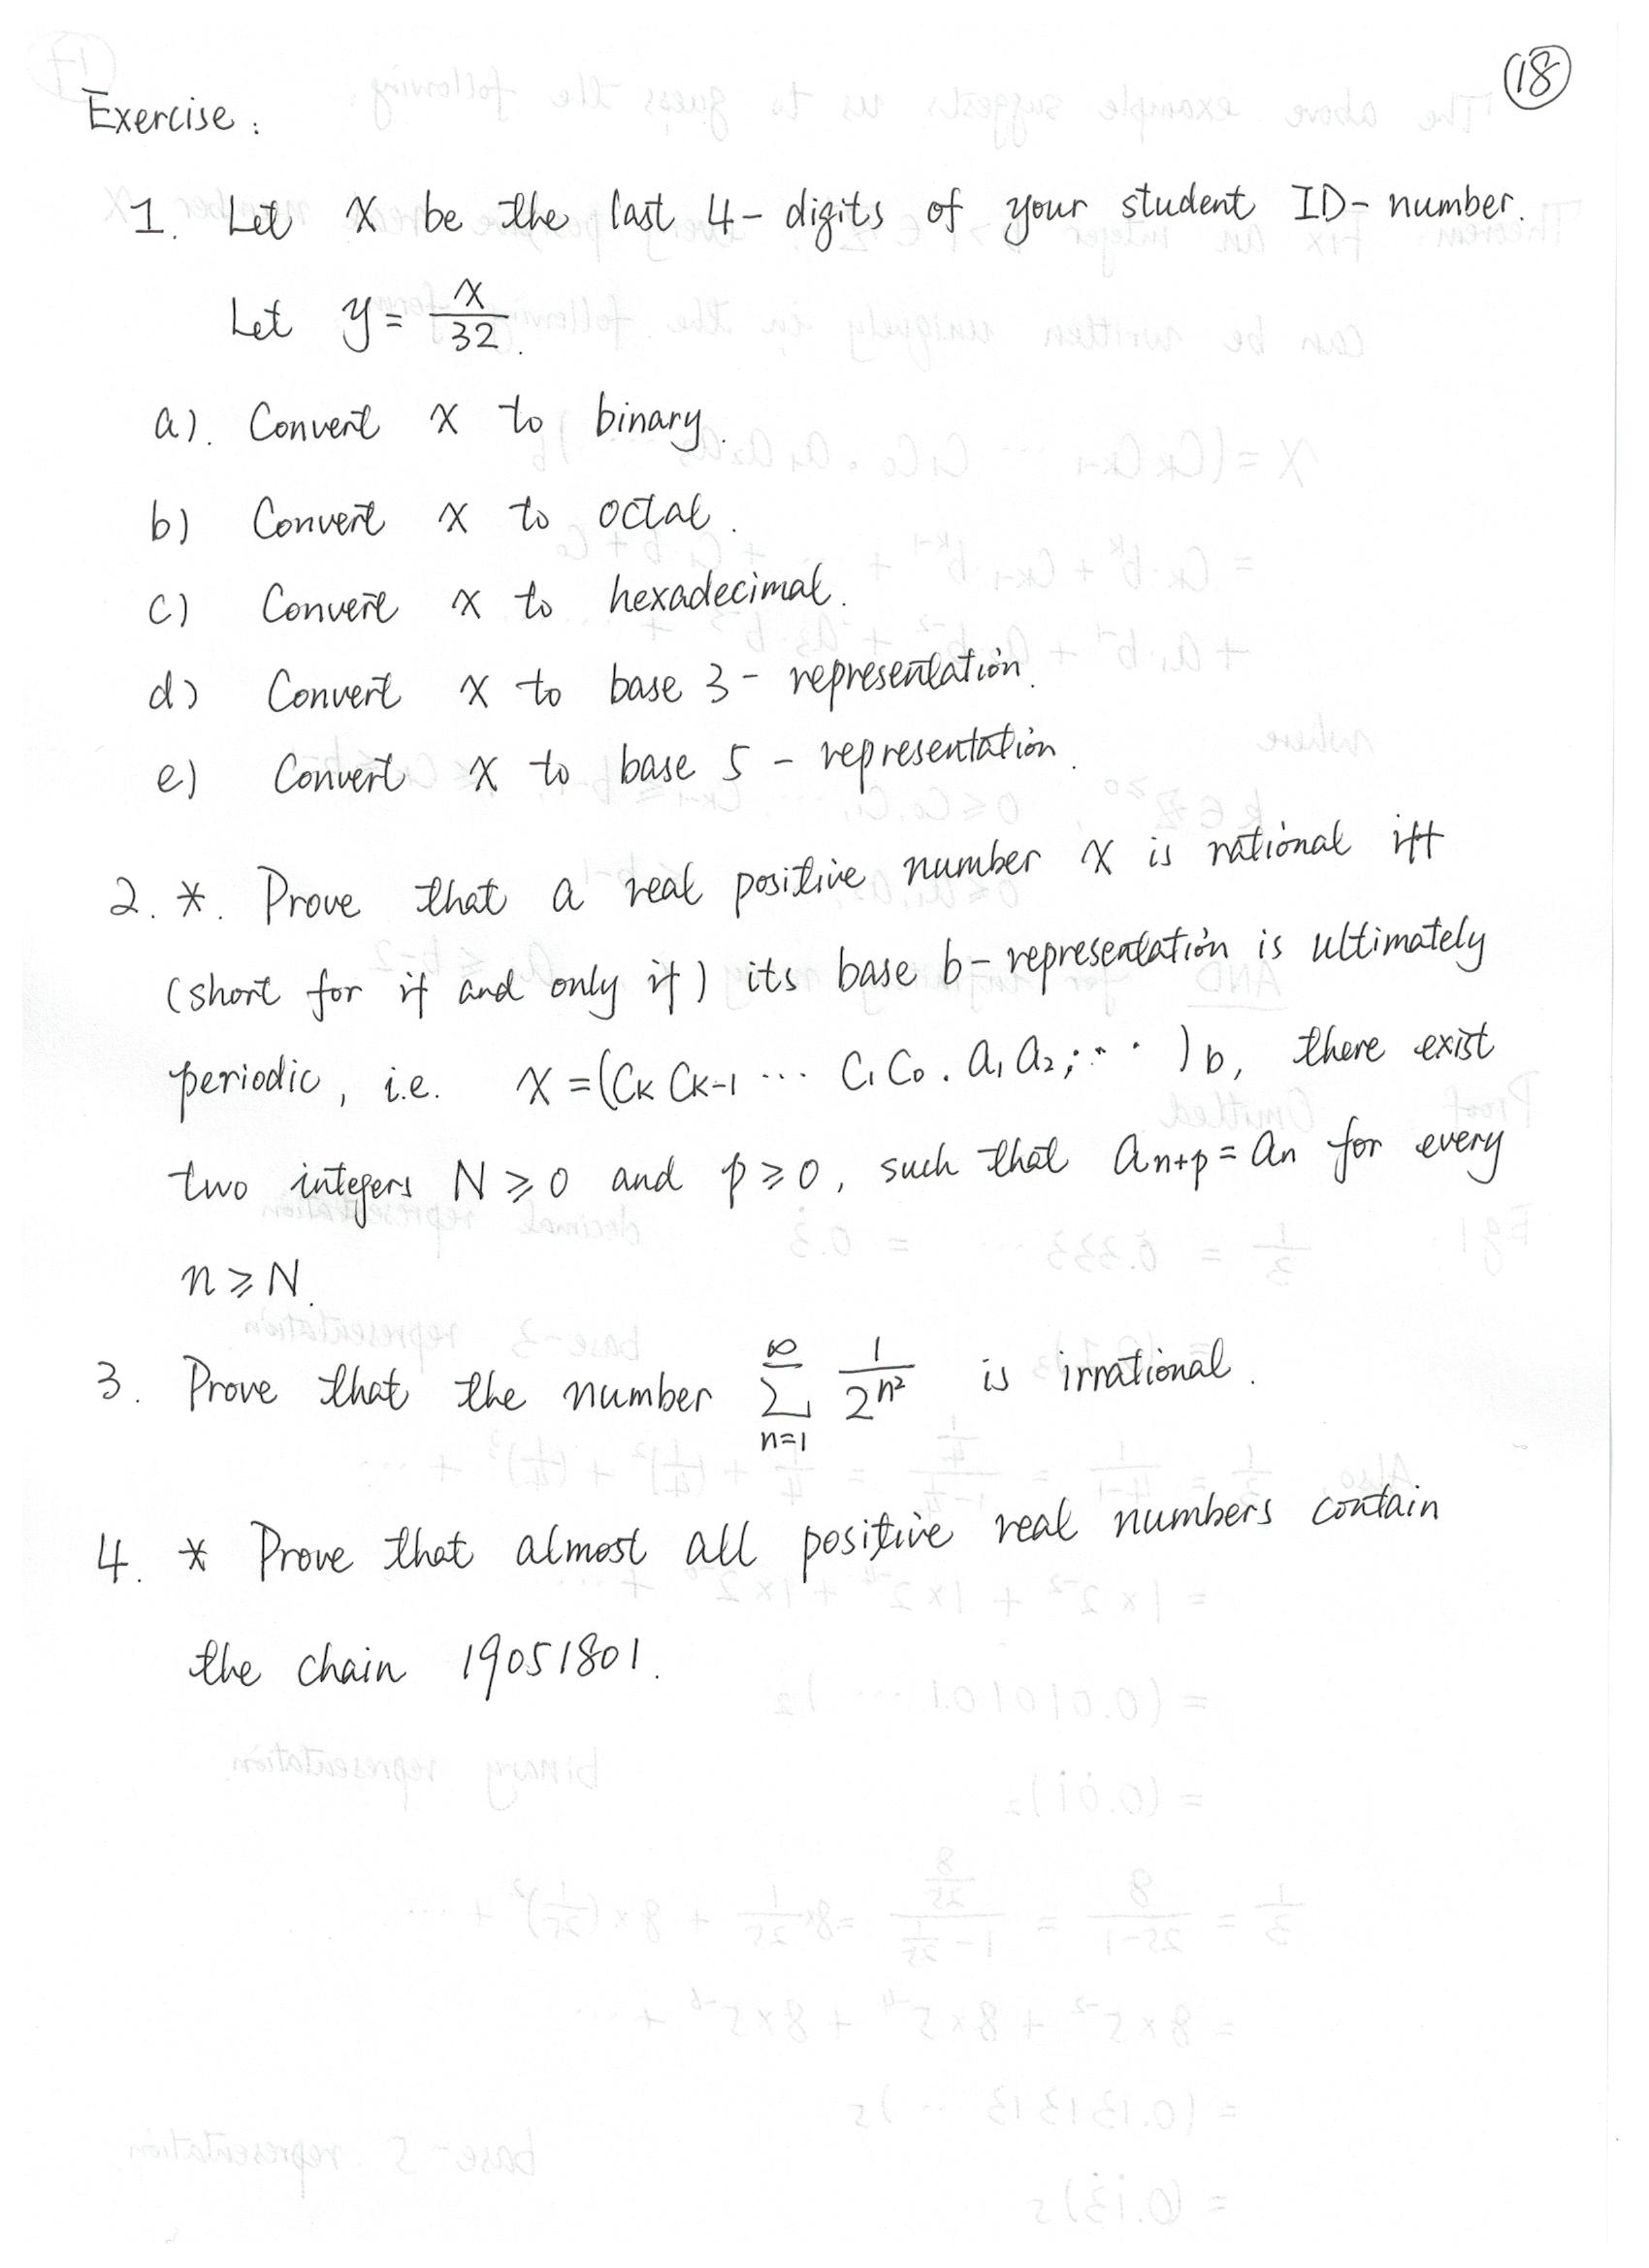 18
Exercise:
1. Let x be the last 4-digits of your student ID-number.
Let y = x/32.
a). Convert x to binary.
b) Convert x to octal.
c) Convert x to hexadecimal.
d) Convert x to base 3-representation.
e) Convert x to base 5-representation.
2. *. Prove that a real positive number x is rational iff
(short for if and only if) its base b-representation is ultimately
periodic, i.e. x = (Cₖ Cₖ₋₁ ⋯ C₁ C₀ . a₁ a₂ ; ⋯ )b, there exist
two integers N ⩾ 0 and p ⩾ 0, such that aₙ₊ₚ = aₙ for every
n ⩾ N.
3. Prove that the number ∑_{n=1}^{∞} 1/2^{n²} is irrational.
4. * Prove that almost all positive real numbers contain
the chain 19051801.